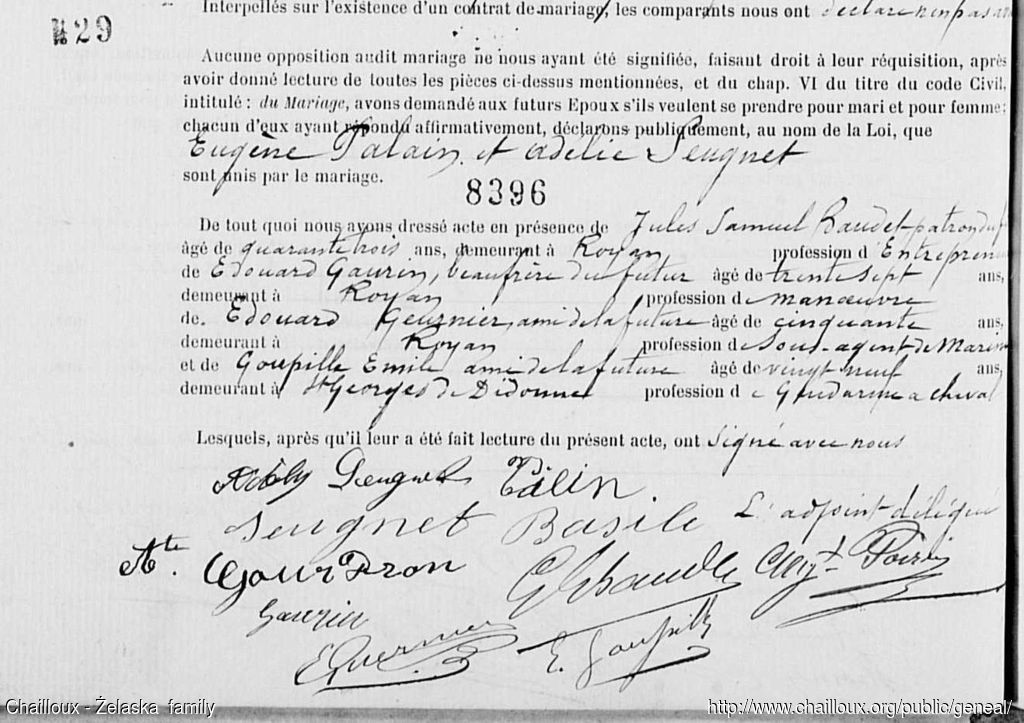 Interpellés sur l'existence d'un contrat de mariage, les comparants nous ont déclaré n'en pas
429
Aucune opposition audit mariage ne nous ayant été signifiée, faisant droit à leur réquisition, après
avoir donné lecture de toutes les pièces ci-dessus mentionnées, et du chap. VI du titre du code Civil,
intitulé : du Mariage, avons demandé aux futurs Epoux s'ils veulent se prendre pour mari et pour femme;
chacun d'eux ayant répondu affirmativement, déclarons publiquement, au nom de la Loi, que
Eugène Palain et Adelie Seugnet
sont unis par le mariage.
8396
De tout quoi nous avons dressé acte en présence de Jules Samuel patron du
âgé de quarante trois ans, demeurant à Royan profession d'Entrepreneur
de Edouard Gaurin, beaufrère du futur âgé de trente sept ans,
demeurant à Royan profession de manœuvre
de Edouard ami de la future âgé de cinquante ans,
demeurant à Royan profession de Sous-agent de Marine
et de Goupille Emile ami de la future âgé de vingt neuf ans,
demeurant à St Georges de Didonne profession de Gendarme a cheval
Lesquels, après qu'il leur a été fait lecture du présent acte, ont signé avec nous
Seugnet Palin.
Seugnet Basile L'adjoint délégué
Gourdron
Gaurin
E. Goupille
Chailloux - Żelaska family
http://www.chailloux.org/public/geneal/